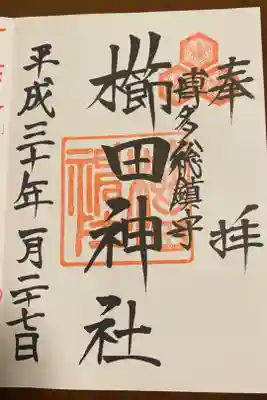 奉拝
博多総鎮守
櫛田神社
平成三十年一月二十七日